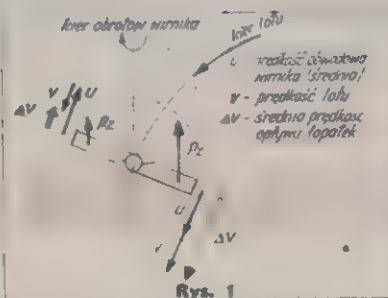 kier obrotów wirnika
kier lotu
u prędkość obwodowa
wirnika (średnia)
v - prędkość lotu
ΔV - średnia prędkość
opływu łopatek
ΔV v u
Pz
Pz
u
ΔV
Rys. 1